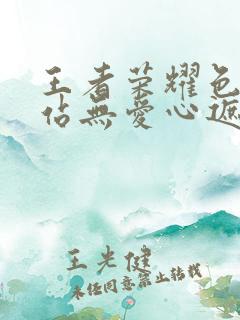 王者荣耀色
佔無愛心遮
王光健
未经同意禁止转载